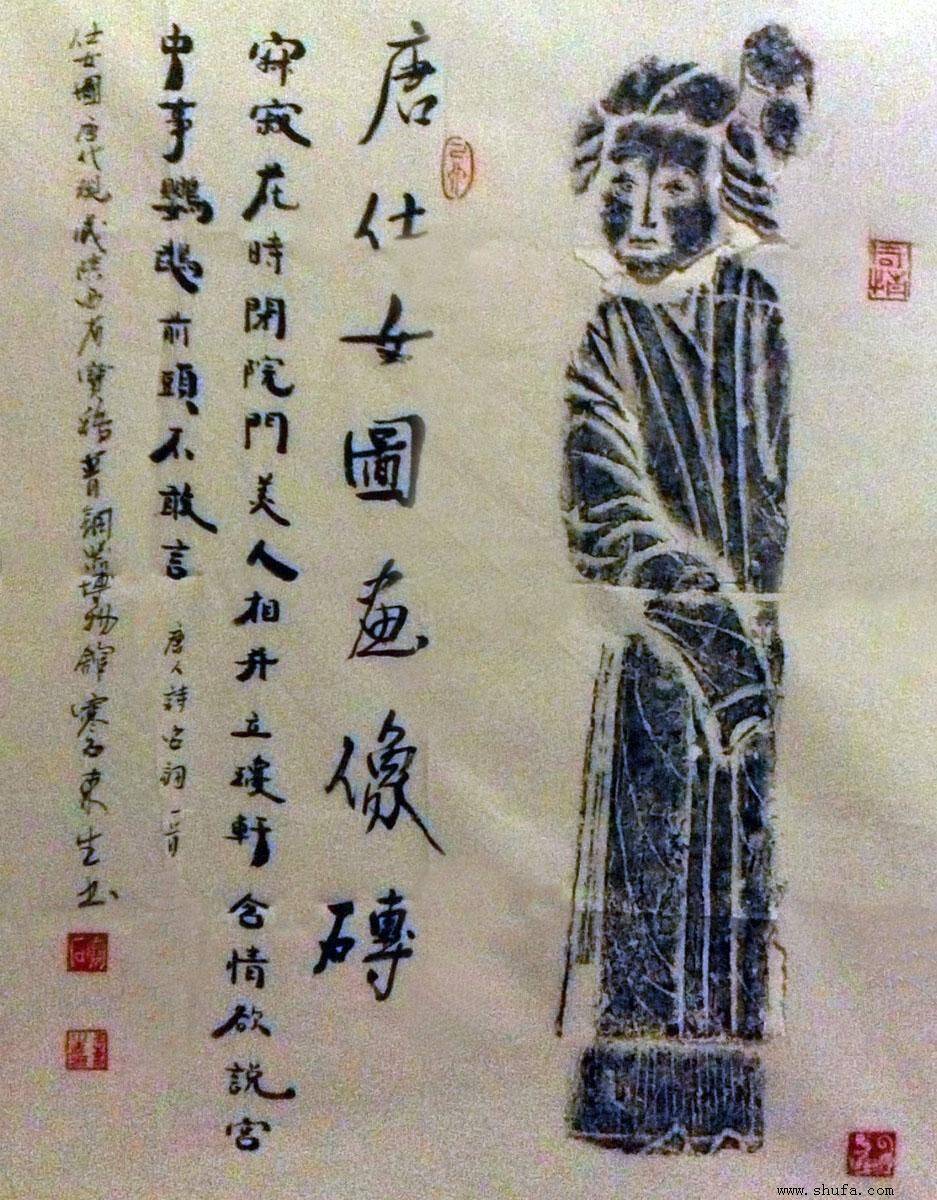 唐仕女圖畫像磚
寂寂花時閉院門美人相并立瓊軒含情欲說宮
中事鸚鵡前頭不敢言 唐人詩宮詞一首
仕女圖唐代現藏陝西省寶雞青銅器博物館 東生书
www.shufa.com